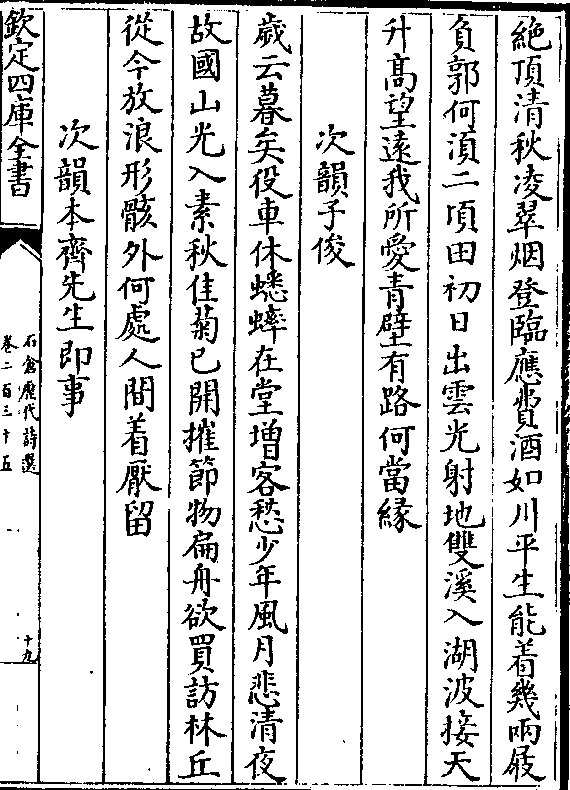 絶頂清秋凌翠烟登臨應費酒如川平生能着幾兩屐
負郭何湏二頃田初日出雲光射地雙溪入湖波接天
升髙望遠我所愛青壁有路何當縁
次韻子俊
歳云暮矣役車休蟋蟀在堂増客愁少年風月悲清夜
故國山光入素秋佳菊已開摧節物扁舟欲買訪林丘
從今放浪形骸外何處人間着厭留
次韻本齊先生即事
欽定四庫全書
石倉歴代詩選
卷二百三十五
十九